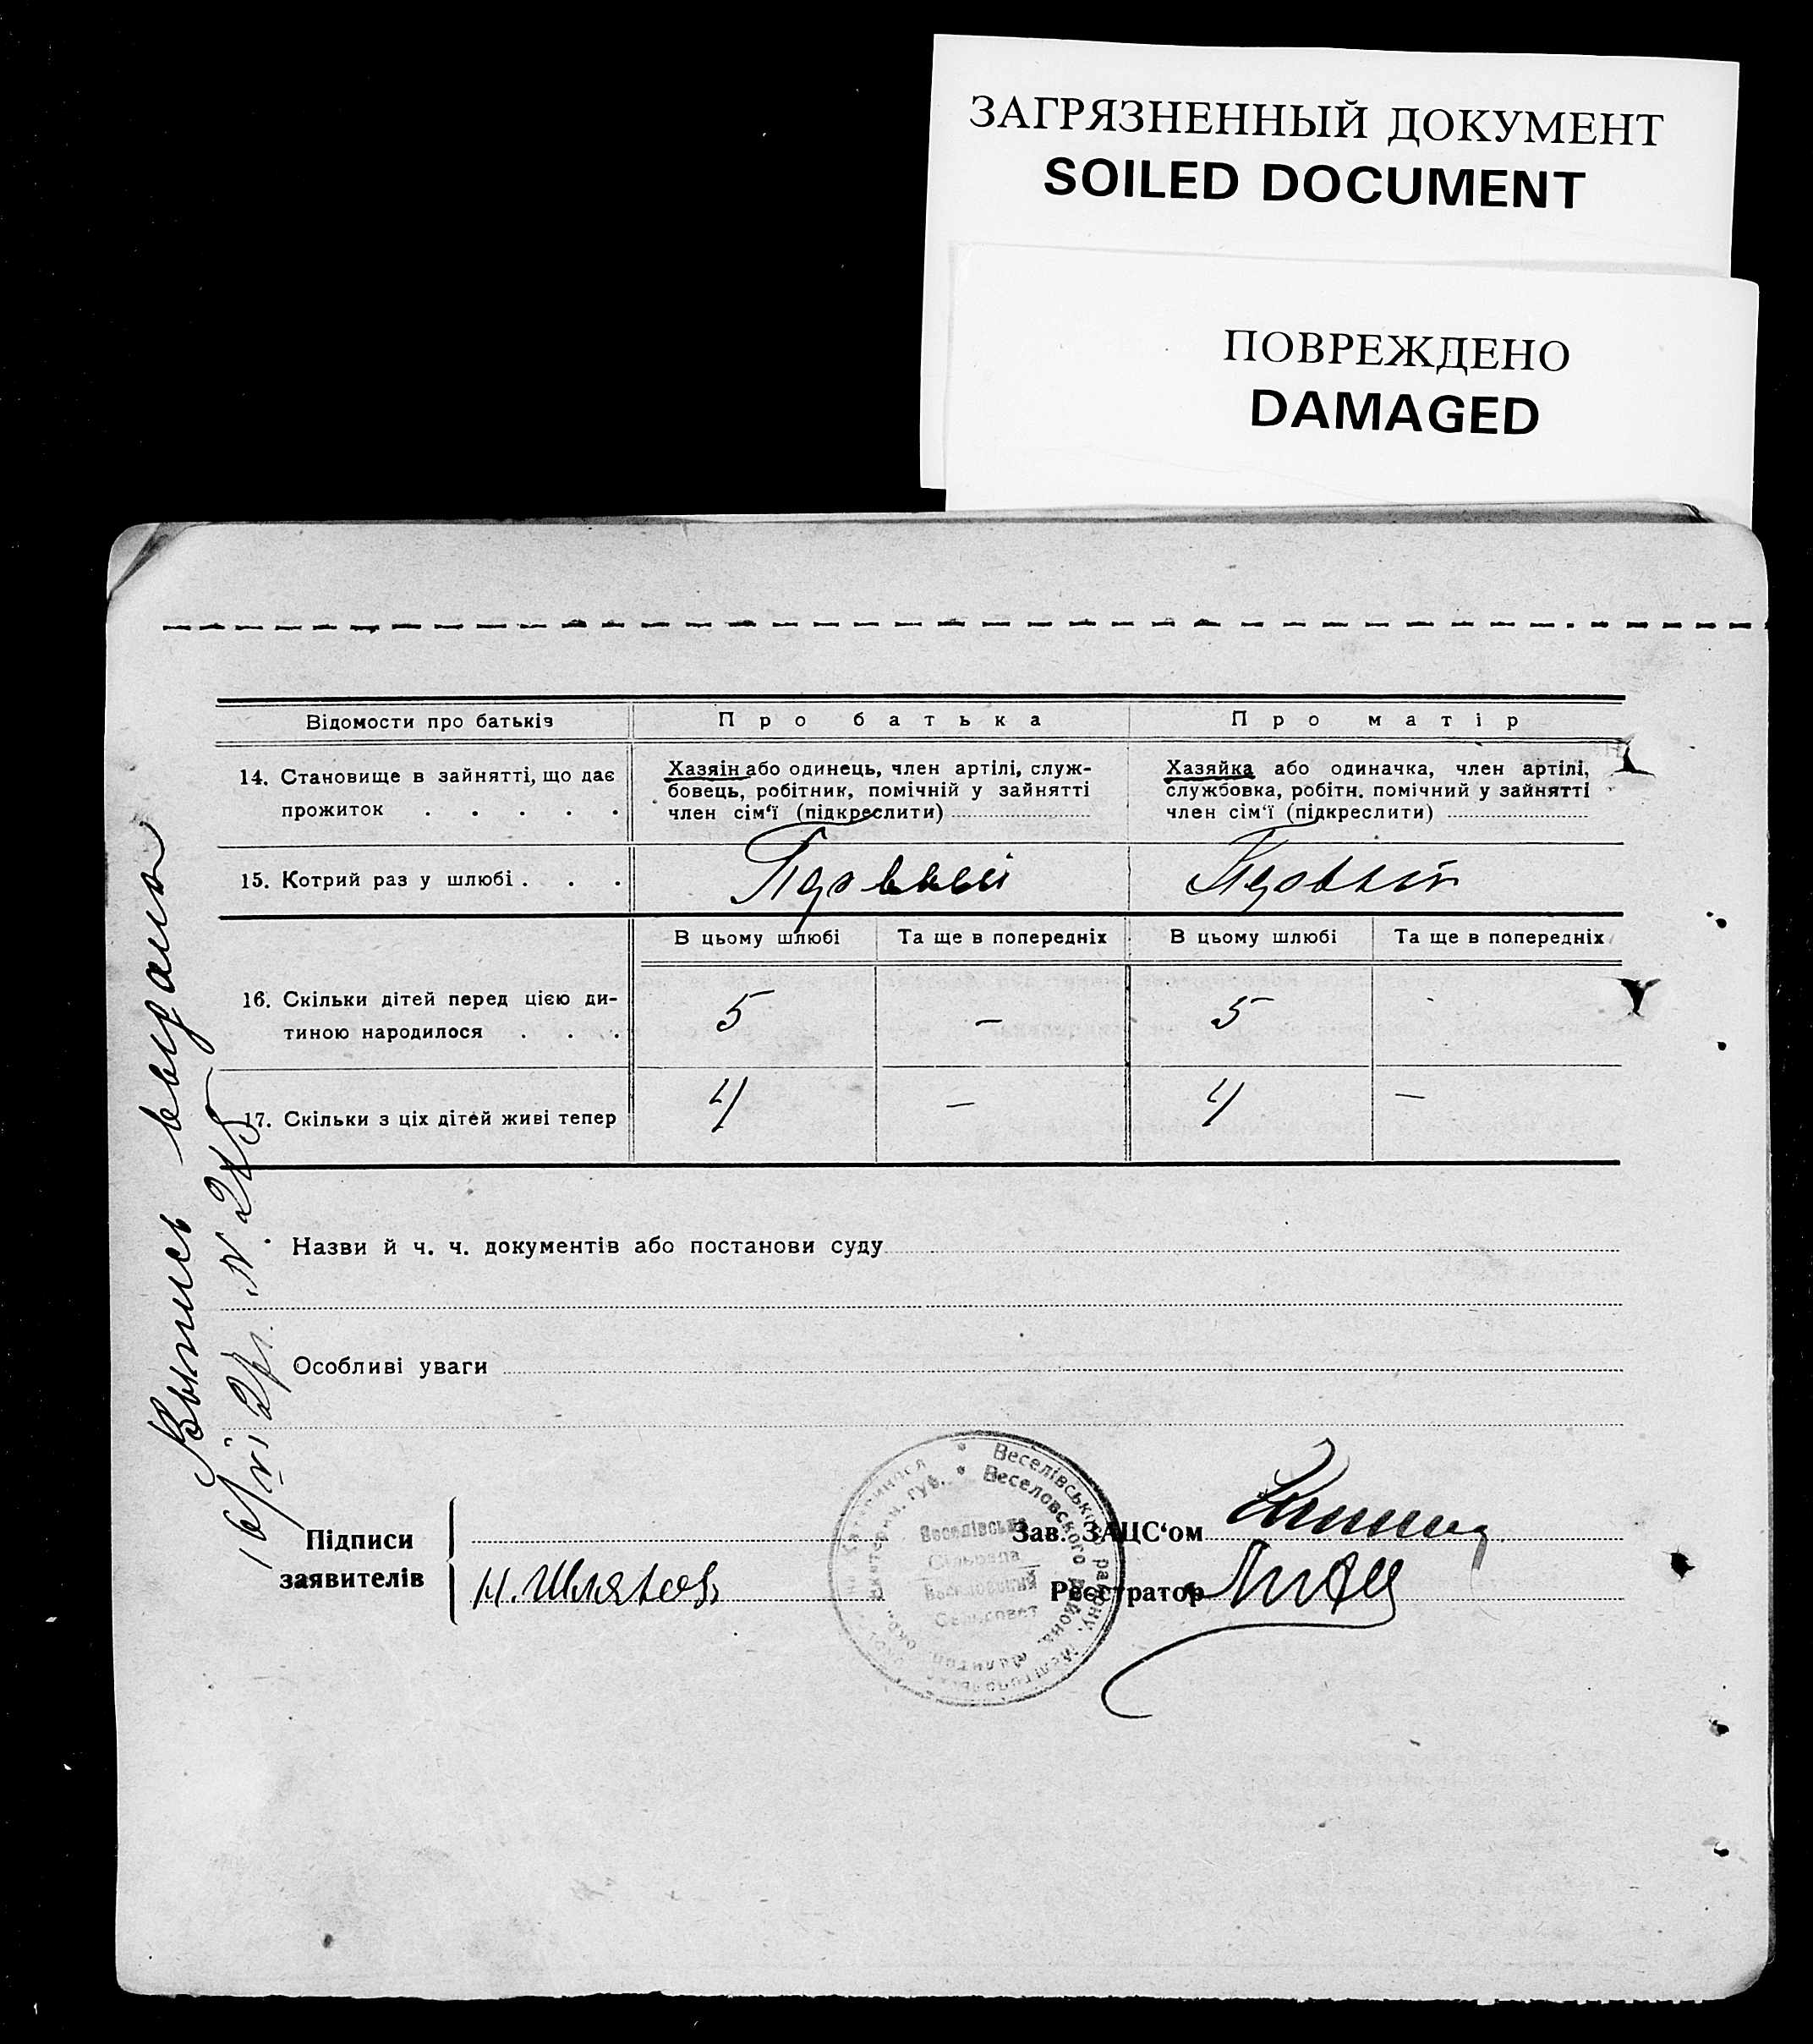 ЗАГРЯЗНЕННЫЙ ДОКУМЕНТ
SOILED DOCUMENT
ПОВРЕЖДЕНО
DAMAGED
Відомости про батьків
Про батька
Про матір
14. Становище в зайнятті, що дає
прожиток . . . . .
Хазяін або одинець, член артілі, служ-
бовець, робітник, помічній у зайнятті
член сім'ї (підкреслити)
Хазяйка або одиначка, член артілі,
службовка, робітн. помічний у зайнятті
член сім'ї (підкреслити)
15. Котрий раз у шлюбі . . .
В цьому шлюбі
Та ще в попередніх
В цьому шлюбі
Та ще в попередніх
16. Скільки дітей перед цією ди-
тиною народилося . . .
5
–
5
17. Скільки з ціх дітей живі тепер
4
–
4
–
Выпись выдано
Назви й ч. ч. документів або постанови суду
Особливі уваги
Підписи
заявителів
Зав. ЗАЦС'ом
Реєстратор
Веселівського району
Веселовского района
Веселівська
Сільрада
Веселовский
Сельсовет